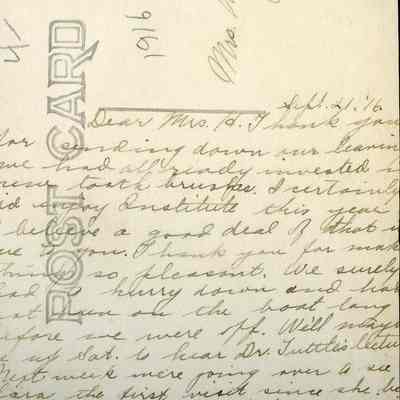 POST CARD
1916
Mrs.
Sept. 21, '16
Dear Mrs. H. Thank you
for sending down our leavin
we had all ready invested i
new tooth brushes. I certainly
did enjoy Institute this year
believe a good deal of that
ue to you. Thank you for mak
thing so pleasant. We surely
had to hurry down and ha
not been on the boat long
before we were off. We'll
up Sat. to hear Dr. Tuttle's lectu
Next week were going over to see
ara the first visit since she